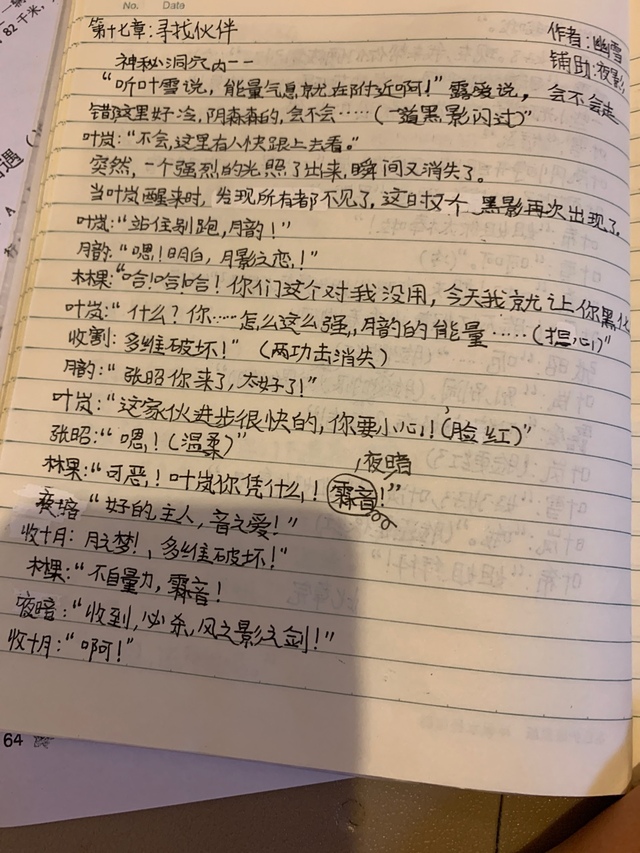 No. Date
第十七章：寻找伙伴 作者：幽雪
神秘洞穴内-- 辅助：夜
"听叶雪说，能量气息就在附近啊！"露爱说，会不会走
错了这里好冷，阴森森的，会不会……（一道黑影闪过）"
叶岚："不会，这里有人快跟上去看。"
突然，一个强烈的光照了出来，瞬间又消失了。
当叶岚醒来时，发现所有都不见了，这时，个黑影再次出现了。
叶岚："站住别跑，月韵！"
月韵："嗯！明白，月影之恋！"
林果："哈！哈！哈！你们这个对我没用，今天我就让你黑化
叶岚："什么？你……怎么这么强，月韵的能量……（担心）"
收割：多维破坏！"（两功击消失）
月韵："张昭你来了，太好了！"
叶岚："这家伙进步很快的，你要小心！（脸红）"
张昭："嗯！（温柔）"
林果："可恶！叶岚你凭什么！霖音！"
夜暗
夜暗"好的主人，音之爱！"
收十月：月之梦！，多维破坏！"
林果："不自量力，霖音！
夜暗："收到，必杀，风之影之剑！"
收十月："啊！"
64
82千米，
遇
A